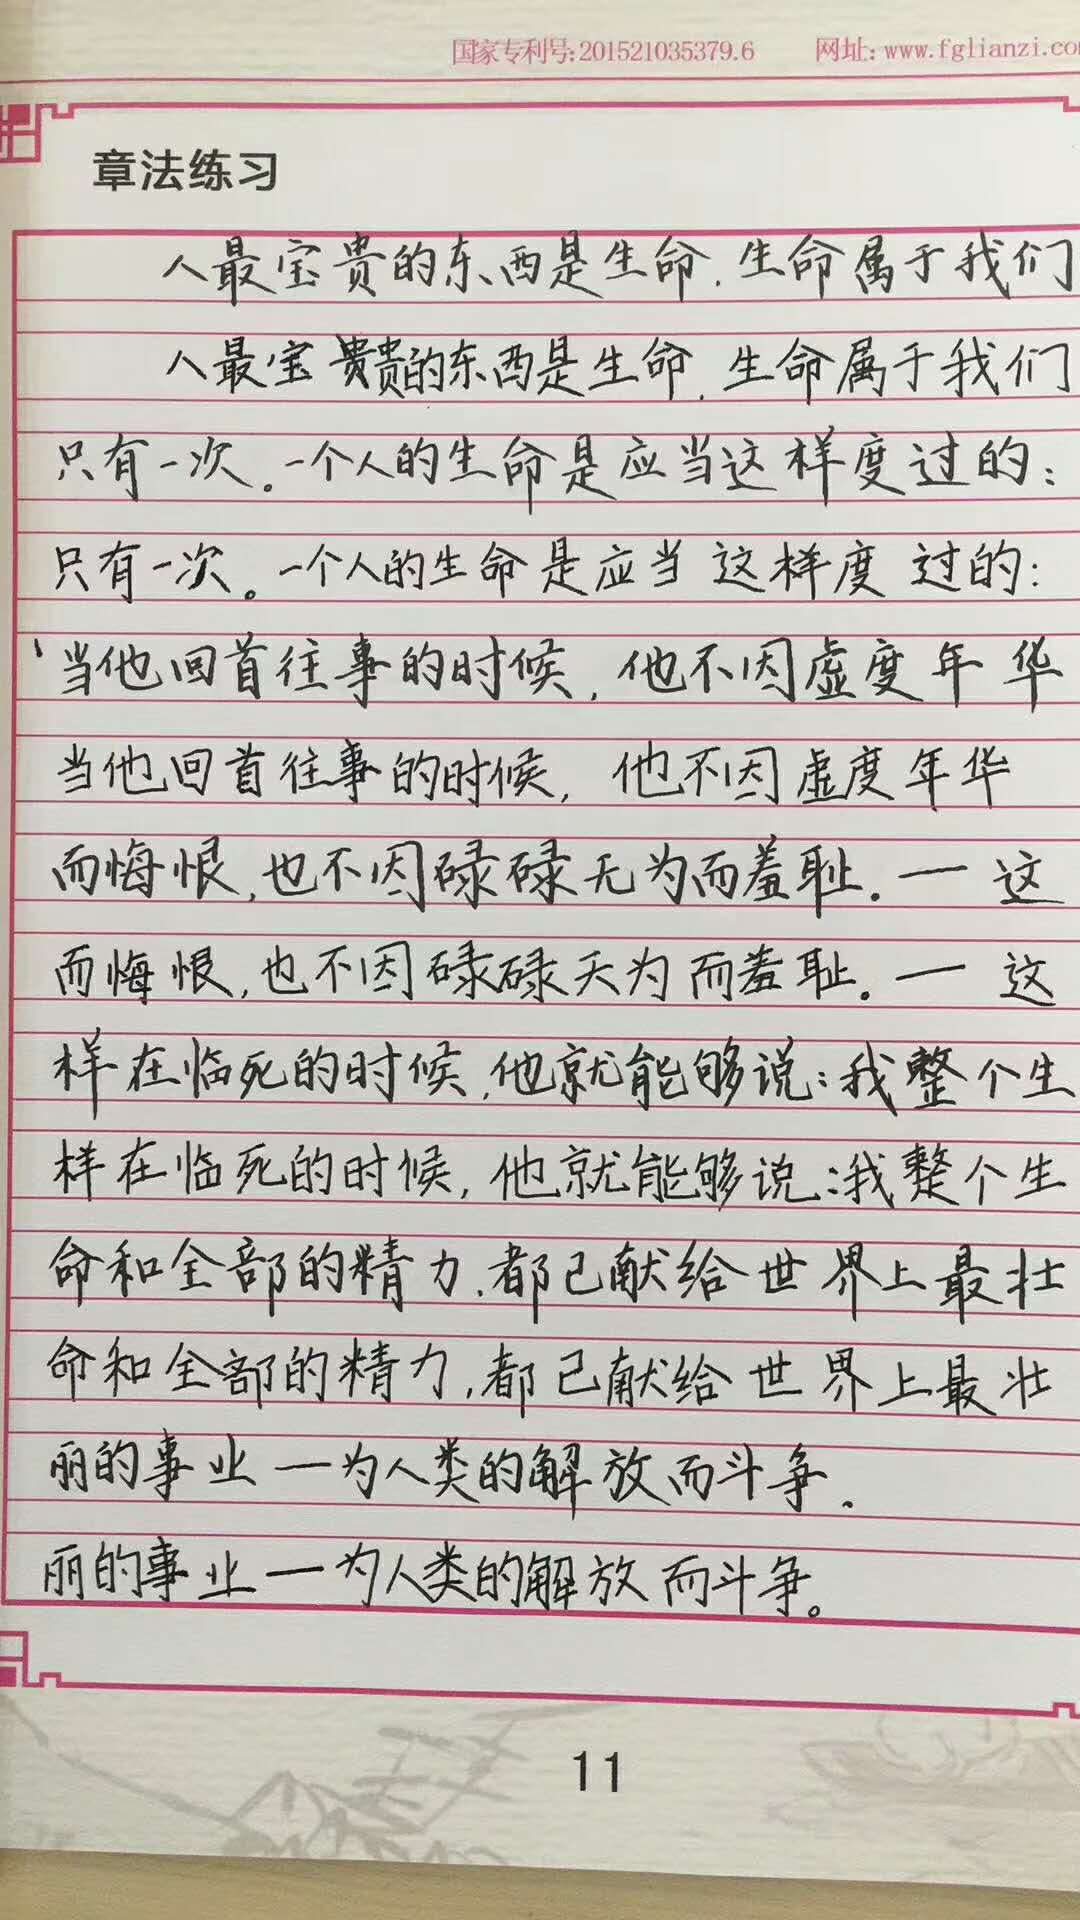 国家专利号:201521035379.6 网址:www.fglianzi.co
章法练习
人最宝贵的东西是生命.生命属于我们
人最宝贵贵的东西是生命.生命属于我们
只有一次。一个人的生命是应当这样度过的:
只有一次。一个人的生命是应当这样度过的:
当他回首往事的时候,他不因虚度年华
当他回首往事的时候,他不因虚度年华
而悔恨,也不因碌碌无为而羞耻。一这
而悔恨,也不因碌碌天为而羞耻。一这
样在临死的时候,他就能够说:我整个生
样在临死的时候,他就能够说:我整个生
命和全部的精力.都已献给世界上最壮
命和全部的精力,都已献给世界上最壮
丽的事业一为人类的解放而斗争.
丽的事业一为人类的解放而斗争。
11